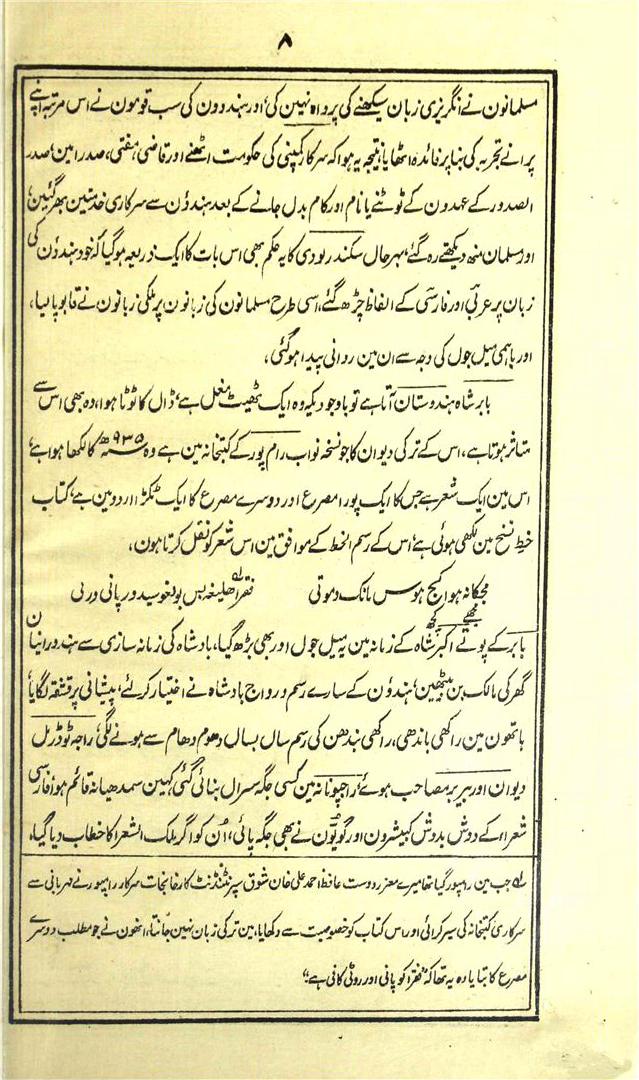 ۸
مسلمانون نے انگریزی زبان سیکھنے کی پرواہ نہین کی، اور ہندوون کی سب قومون نے اس مرتبہ اپنے
پرانے تجربہ کی بنا پر فائدہ اٹھایا، نتیجہ یہ ہوا کہ سرکار کمپنی کی حکومت اٹھنے اور قاضی، مفتی، صدر امین، صدر
الصدور کے عہدون کے ٹوٹنے یا نام اور کام بدل جانے کے بعد ہندؤن سے سرکاری خدمتین بھر گئین،
اور مسلمان منھ دیکھتے رہ گئے، بہر حال سکندر لودی کا یہ حکم بھی اس بات کا ایک ذریعہ ہوگیا کہ خود ہندؤن کی
زبان پر عربی اور فارسی کے الفاظ چڑھ گئے، اسی طرح مسلمانون کی زبانون پر ملکی زبانون نے قابو پالیا،
اور باہمی میل جول کی وجہ سے ان مین روانی پیدا ہوگئی،
بابر شاہ ہندوستان آتا ہے تو باوجودیکہ وہ ایک ٹھیٹ مغل ہے، ڈال کا ٹوٹا ہوا، وہ بھی اس سے
متاثر ہوتا ہے، اس کے ترکی دیوان کا جو نسخہ نواب رام پور کے کتبخانہ مین ہے وہ ۹۳۵ھ کا لکھا ہوا ہے،
اس مین ایک شعر ہے جس کا ایک پورا مصرع اور دوسرے مصرع کا ایک ٹکڑا اردو مین ہے، کتاب
خط نسخ مین لکھی ہوئی ہے، اس کے رسم الخط کے موافق مین اس شعر کو نقل کرتا ہون،
مجکا نہ ہوا کج ہوس مانک و موتی فقرا ھلیغہ بس بولغوسیدور پانی و رتی
مجھے کچھ
بابر کے پوتے اکبر شاہ کے زمانہ مین یہ میل جول اور بھی بڑھ گیا، بادشاہ کی زمانہ سازی سے ہندو رانیان
گھر کی مالک بن بیٹھین، ہندؤن کے سارے رسم و رواج بادشاہ نے اختیار کرلئے، پیشانی پر قشقہ لگایا،
ہاتھون مین راکھی باندھی، راکھی بندھن کی رسم سال بسال دھوم دھام سے ہونے لگی، راجہ ٹوڈرمل
دیوان اور بیربر مصاحب ہوئے، راجپوتانہ مین کسی جگہ سسرال بنائی گئی، کہین سمدھیانہ قائم ہوا، فارسی
شعراء کے دوش بدوش کبیشرون اور گویّون نے بھی جگہ پائی، ان کو اگر ملک الشعرا کا خطاب دیا گیا،
لہ جب مین رامپور گیا تھا میرے معزز دوست حافظ احمد علی خان شوق سپرنٹنڈنٹ کارخانجات سرکار رامپور نے مہربانی سے
سرکاری کتبخانہ کی سیر کرائی اور اس کتاب کو خصوصیت سے دکھایا، مین ترکی زبان نہین جانتا، انھون نے جو مطلب دوسرے
مصرع کا بتایا وہ یہ تھا کہ "فقرا کو پانی اور روٹی کافی ہے"